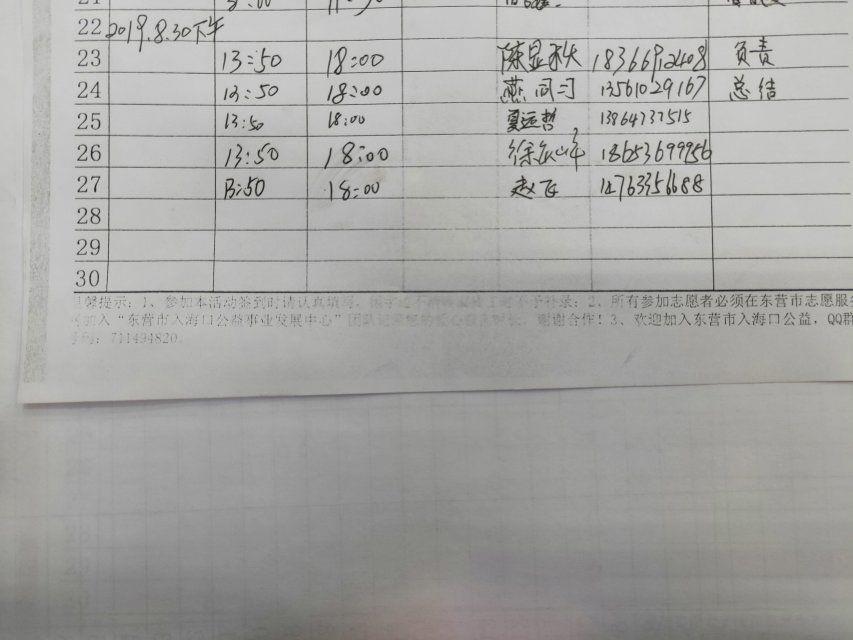 22 2019.8.30下午
23 13:50 18:00 陈显秋 18366912408 负责
24 13:50 18:00 燕同习 13561029167 总结
25 13:50 18:00 夏运哲 13864737515
26 13:50 18:00 18653699956
27 13:50 18:00 赵飞 14763356688
28
29
30
提示：1、参加本活动签到时请认真填写，不予补录；2、所有参加志愿者必须在东营市志愿服
加入“东营市入海口公益事业发展中心”团队 谢谢合作！3、欢迎加入东营市入海口公益，QQ群
号码：711494820。